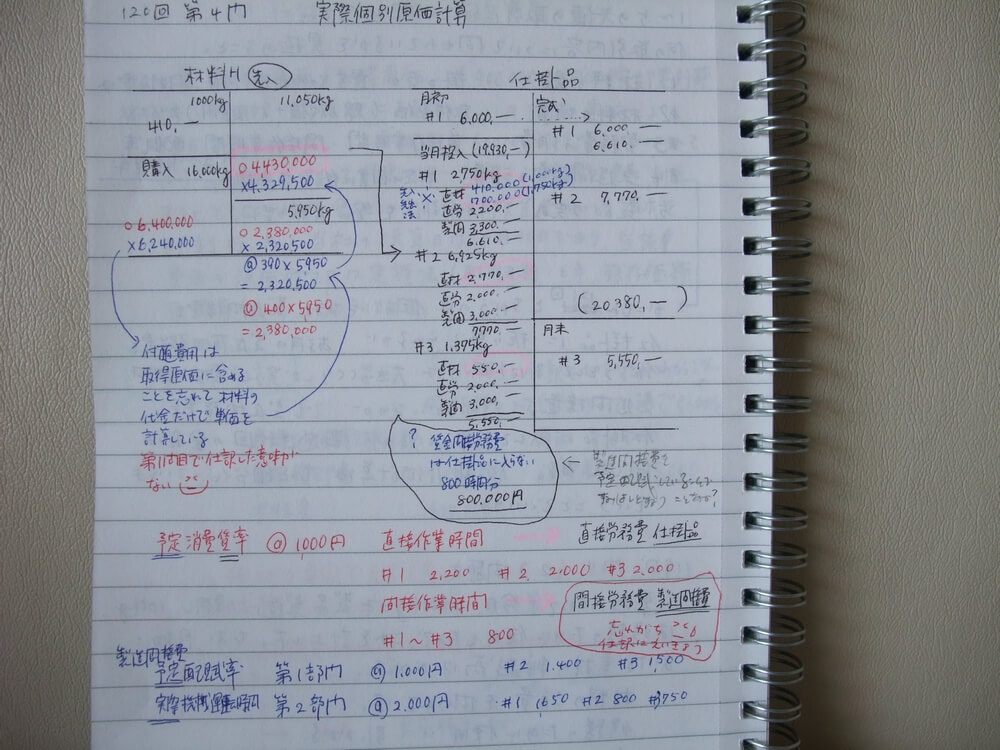 120回 第4問 実際個別原価計算
材料H 先入
1000kg 11,050kg
410,―
購入 16,000kg ○4,430,000
×4,329,500
5,950kg
○6,400,000 ○2,380,000
×6,240,000 ×2,320,500
@390×5950
=2,320,500
@400×5950
=2,380,000
付随費用は
取得原価に含める
ことを忘れて材料の
代金だけで単価を
計算している
第1問目で仕訳した意味が
ない
仕掛品
月初 完成
#1 6,000,― #1 6,000,―
6,610,―
当月投入 (19,930,―)
#1 2,750kg
直材 410,000(1,000kg)
700,000(1,750kg)
直労 2,200,―
製間 3,300,―
6,610,―
#2 7,770,―
#2 6,925kg
直材 2,770,―
直労 2,000,―
製間 3,000,―
7,770,―
(20380,―)
月末
#3 5,550,―
#3 1,375kg
直材 550,―
直労 2,000,―
製間 3,000,―
5,550,―
? 賃金間接労務費
は仕掛品に入らない
800時間分
800,000円
製造間接費を
予定配賦している
予定消費賃率 @1,000円 直接作業時間 直接労務費 仕掛品
#1 2,200 #2 2,000 #3 2,000
間接作業時間 間接労務費 製造間接費
#1~#3 800 忘れがち
製造間接費
予定配賦率 第1部門 @1,000円 #2 1,400 #3 1,500
実際機械運転時間 第2部門 @2,000円 #1 1,650 #2 800 #3 750